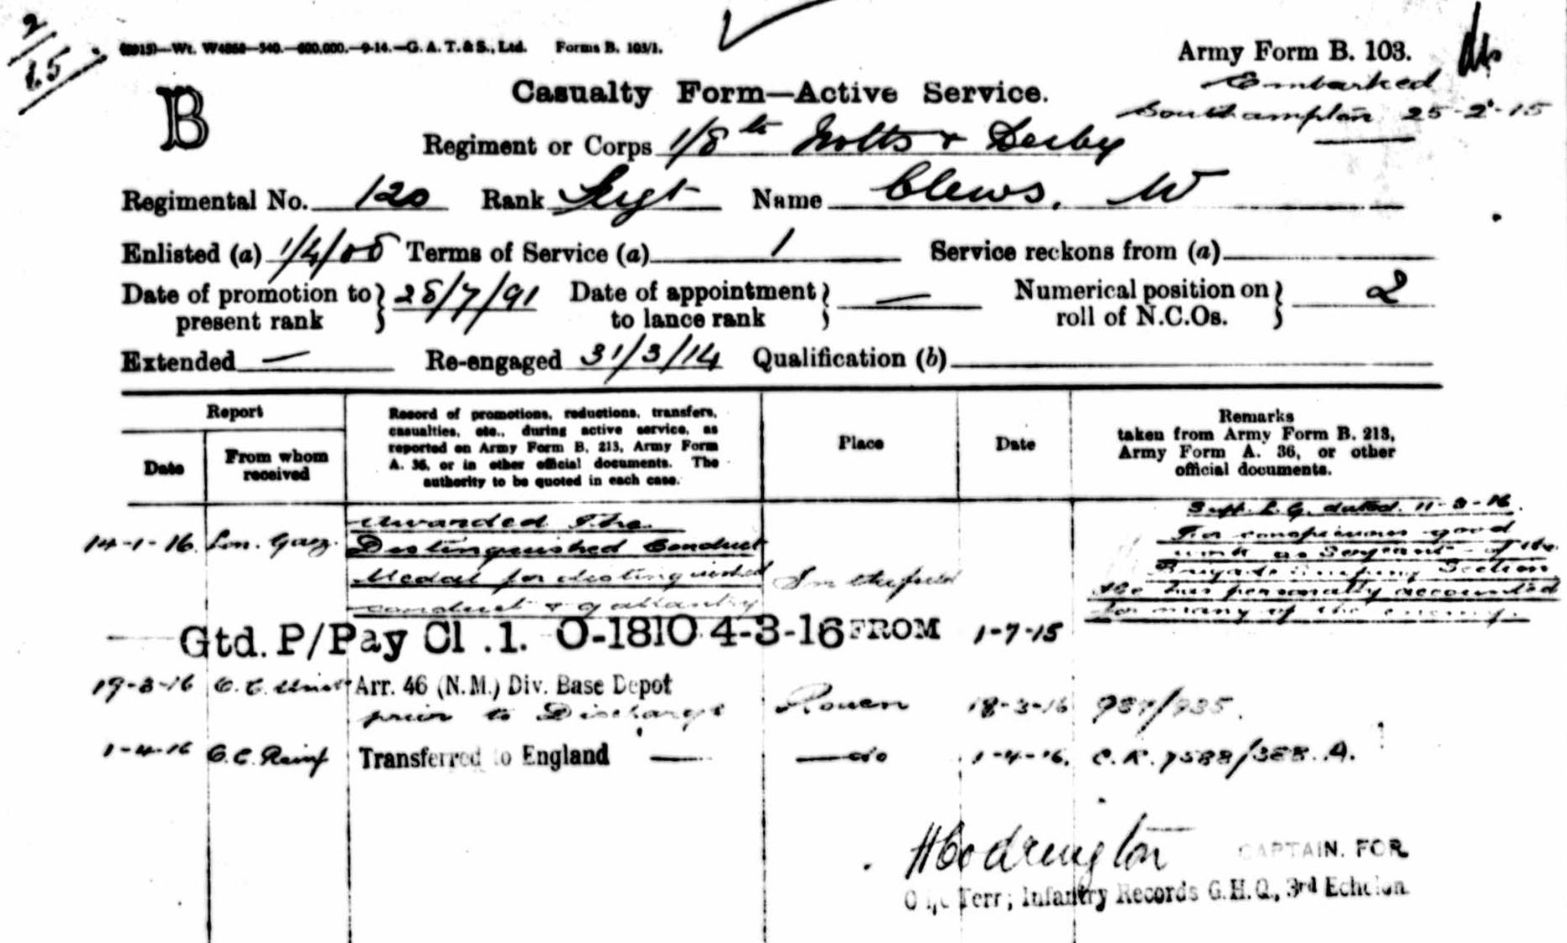 2/15
(6915)—Wt. W4868—540.—600,000.—9-14.—G. A. T. & S., Ltd. Forms B. 103/1.
Army Form B. 103.
Embarked
Southampton 25-2-15
B
Casualty Form—Active Service.
Regiment or Corps 1/8th Notts & Derby
Regimental No. 120 Rank Sergt Name Clews, W
Enlisted (a) 1/4/08 Terms of Service (a) 1 Service reckons from (a)
Date of promotion to present rank } 28/7/91 Date of appointment to lance rank } — Numerical position on roll of N.C.Os. } 2
Extended — Re-engaged 31/3/14 Qualification (b)
Report
Date
From whom received
Record of promotions, reductions, transfers,
casualties, etc., during active service, as
reported on Army Form B. 213, Army Form
A. 36, or in other official documents. The
authority to be quoted in each case.
Place
Date
Remarks
taken from Army Form B. 213,
Army Form A. 36, or other
official documents.
14-1-16 Lon. Gaz.
Awarded The
Distinguished Conduct
Medal for distinguished
conduct & gallantry
In the field
Supp. L. G. dated 11-3-16.
For conspicuous good
work as Sergeant of the
Brigade Sniping Section
He has personally accounted
for many of the enemy.
Gtd. P/Pay Cl .1. O-1810 4-3-16 FROM 1-7-15
19-3-16 O. C. Unit Arr. 46 (N.M.) Div. Base Depot
prior to Discharge Rouen 18-3-16 937/935.
1-4-16 O.C. Reinf Transferred to England — — do 1-4-16. C.R. 7588/388. A.
H Codrington CAPTAIN. FOR
Terr; Infantry Records G.H.Q., 3rd Echelon